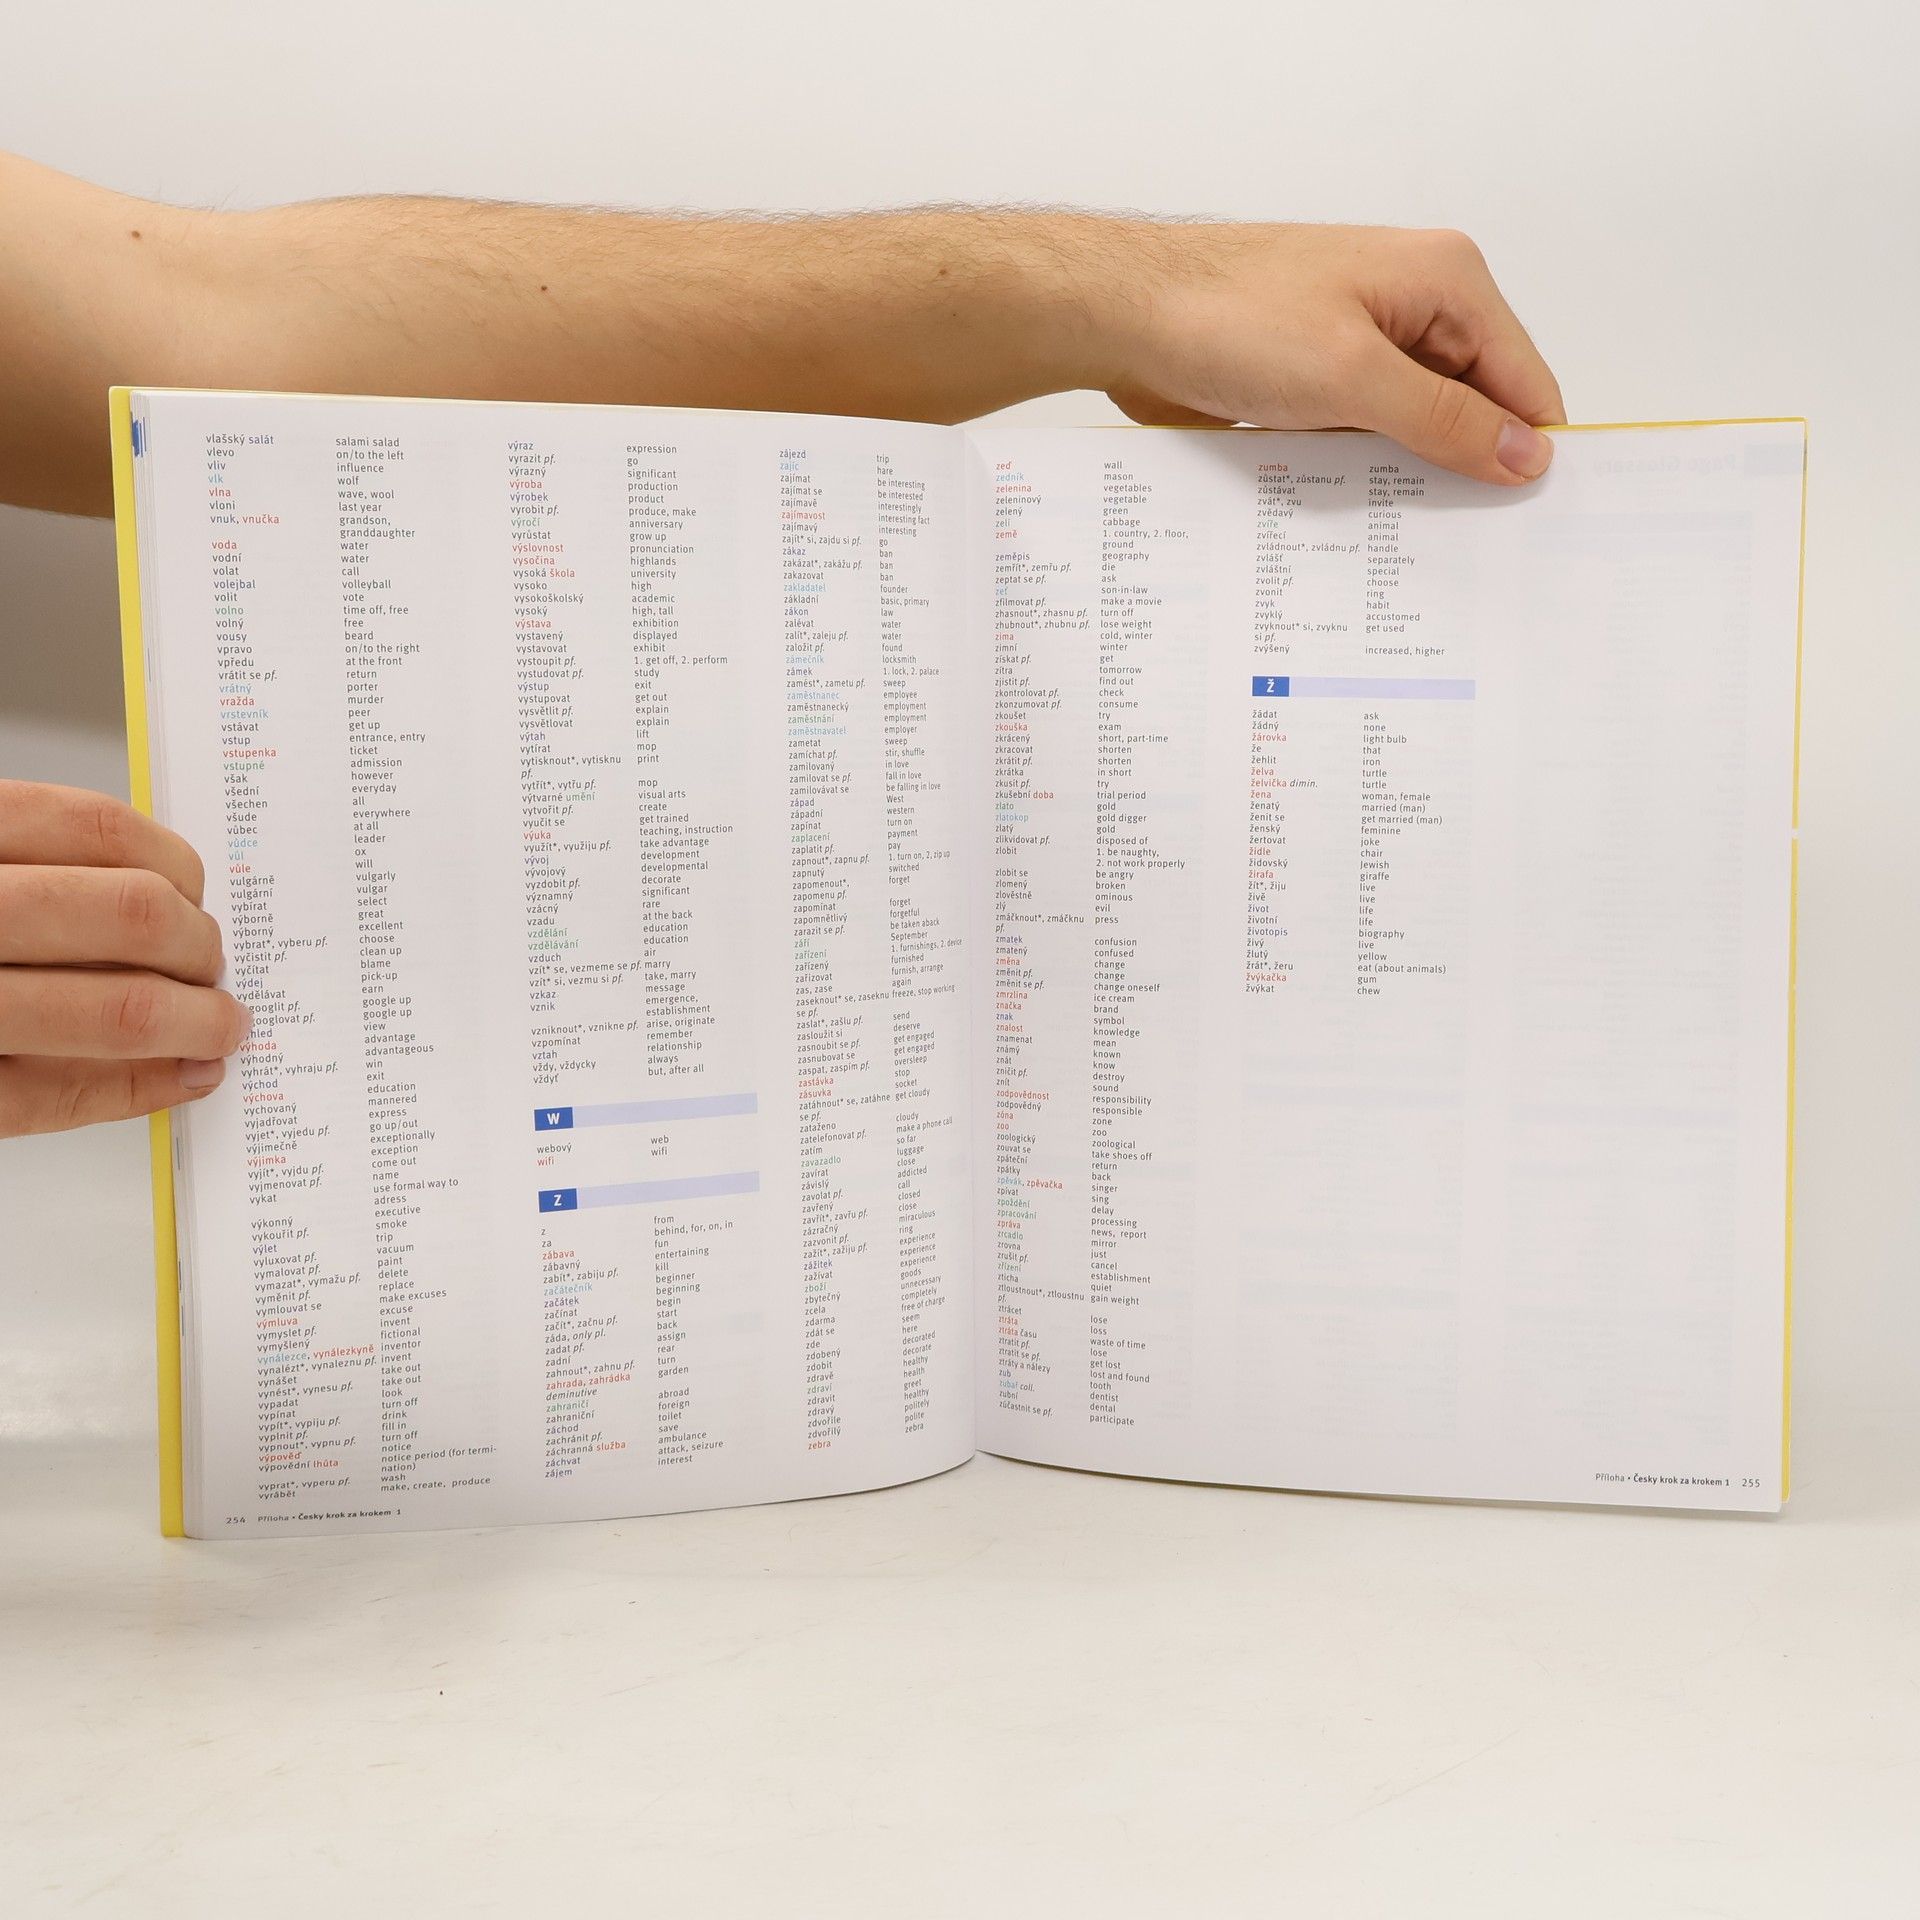 vlašský salát salami salad
vlevo on/to the left
vliv influence
vlk wolf
vlna wave, wool
vloni last year
vnuk, vnučka grandson,
granddaughter
voda water
vodní water
volat call
volejbal volleyball
volit vote
volno time off, free
volný free
vousy beard
vpravo on/to the right
vpředu at the front
vrátit se pf. return
vrátný porter
vražda murder
vrstevník peer
vstávat get up
vstup entrance, entry
vstupenka ticket
vstupné admission
však however
všední everyday
všechen all
všude everywhere
vůbec at all
vůdce leader
vůl ox
vůle will
vulgárně vulgarly
vulgární vulgar
vybírat select
výborně great
výborný excellent
vybrat*, vyberu pf. choose
vyčistit pf. clean up
vyčítat blame
výdej pick-up
vydělávat earn
googlit pf. google up
googlovat pf. google up
hled view
výhoda advantage
výhodný advantageous
vyhrát*, vyhraju pf. win
východ exit
výchova education
vychovaný mannered
vyjadřovat express
vyjet*, vyjedu pf. go up/out
výjimečně exceptionally
výjimka exception
vyjít*, vyjdu pf. come out
vyjmenovat pf. name
vykat use formal way to
adress
výkonný executive
vykouřit pf. smoke
výlet trip
vyluxovat pf. vacuum
vymalovat pf. paint
vymazat*, vymažu pf. delete
vyměnit pf. replace
vymlouvat se make excuses
výmluva excuse
vymyslet pf. invent
vymyšlený fictional
vynálezce, vynálezkyně inventor
vynalézt*, vynaleznu pf. invent
vynášet take out
vynést*, vynesu pf. take out
vypadat look
vypínat turn off
vypít*, vypiju pf. drink
vyplnit pf. fill in
vypnout*, vypnu pf. turn off
výpověď notice
výpovědní lhůta notice period (for termi-
nation)
vyprat*, vyperu pf. wash
vyrábět make, create, produce
254 Příloha • Česky krok za krokem 1
výraz expression
vyrazit pf. go
výrazný significant
výroba production
výrobek product
vyrobit pf. produce, make
výročí anniversary
vyrůstat grow up
výslovnost pronunciation
vysočina highlands
vysoká škola university
vysoko high
vysokoškolský academic
vysoký high, tall
výstava exhibition
vystavený displayed
vystavovat exhibit
vystoupit pf. 1. get off, 2. perform
vystudovat pf. study
výstup exit
vystupovat get out
vysvětlit pf. explain
vysvětlovat explain
výtah lift
vytírat mop
vytisknout*, vytisknu print
pf.
vytřít*, vytřu pf. mop
výtvarné umění visual arts
vytvořit pf. create
vyučit se get trained
výuka teaching, instruction
využít*, využiju pf. take advantage
vývoj development
vývojový developmental
vyzdobit pf. decorate
významný significant
vzácný rare
vzadu at the back
vzdělání education
vzdělávání education
vzduch air
vzít* se, vezmeme se pf. marry
vzít* si, vezmu si pf. take, marry
vzkaz message
vznik emergence,
establishment
vzniknout*, vznikne pf. arise, originate
vzpomínat remember
vztah relationship
vždy, vždycky always
vždyť but, after all
W
webový web
wifi wifi
Z
z from
za behind, for, on, in
zábava fun
zábavný entertaining
zabít*, zabiju pf. kill
začátečník beginner
začátek beginning
začínat begin
začít*, začnu pf. start
záda, only pl. back
zadat pf. assign
zadní rear
zahnout*, zahnu pf. turn
zahrada, zahrádka garden
deminutive
zahraničí abroad
zahraniční foreign
záchod toilet
zachránit pf. save
záchranná služba ambulance
záchvat attack, seizure
zájem interest
zájezd trip
zajíc hare
zajímat be interesting
zajímat se be interested
zajímavě interestingly
zajímavost interesting fact
zajímavý interesting
zajít* si, zajdu si pf. go
zákaz ban
zakázat*, zakážu pf. ban
zakazovat ban
zakladatel founder
základní basic, primary
zákon law
zalévat water
zalít*, zaleju pf. water
založit pf. found
zámečník locksmith
zámek 1. lock, 2. palace
zamést*, zametu pf. sweep
zaměstnanec employee
zaměstnanecký employment
zaměstnání employment
zaměstnavatel employer
zametat sweep
zamíchat pf. stir, shuffle
zamilovaný in love
zamilovat se pf. fall in love
zamilovávat se be falling in love
západ West
západní western
zapínat turn on
zaplacení payment
zaplatit pf. pay
zapnout*, zapnu pf. 1. turn on, 2. zip up
zapnutý switched
zapomenout*, forget
zapomenu pf.
zapomínat forget
zapomnětlivý forgetful
zarazit se pf. be taken aback
září September
zařízení 1. furnishings, 2. device
zařízený furnished
zařizovat furnish, arrange
zas, zase again
zaseknout* se, zaseknu freeze, stop working
se pf.
zaslat*, zašlu pf. send
zasloužit si deserve
zasnoubit se pf. get engaged
zasnubovat se get engaged
zaspat, zaspím pf. oversleep
zastávka stop
zásuvka socket
zatáhnout* se, zatáhne get cloudy
se pf.
zataženo cloudy
zatelefonovat pf. make a phone call
zatím so far
zavazadlo luggage
zavírat close
závislý addicted
zavolat pf. call
zavřený closed
zavřít*, zavřu pf. close
zázračný miraculous
zazvonit pf. ring
zažít*, zažiju pf. experience
zážitek experience
zažívat experience
zboží goods
zbytečný unnecessary
zcela completely
zdarma free of charge
zdát se seem
zde here
zdobený decorated
zdobit decorate
zdravě healthy
zdraví health
zdravit greet
zdravý healthy
zdvořile politely
zdvořilý polite
zebra zebra
zeď wall
zedník mason
zelenina vegetables
zeleninový vegetable
zelený green
zelí cabbage
země 1. country, 2. floor,
ground
zeměpis geography
zemřít*, zemřu pf. die
zeptat se pf. ask
zeť son-in-law
zfilmovat pf. make a movie
zhasnout*, zhasnu pf. turn off
zhubnout*, zhubnu pf. lose weight
zima cold, winter
zimní winter
získat pf. get
zítra tomorrow
zjistit pf. find out
zkontrolovat pf. check
zkonzumovat pf. consume
zkoušet try
zkouška exam
zkrácený short, part-time
zkracovat shorten
zkrátit pf. shorten
zkrátka in short
zkusit pf. try
zkušební doba trial period
zlato gold
zlatokop gold digger
zlatý gold
zlikvidovat pf. disposed of
zlobit 1. be naughty,
2. not work properly
zlobit se be angry
zlomený broken
zlověstně ominous
zlý evil
zmáčknout*, zmáčknu press
pf.
zmatek confusion
zmatený confused
změna change
změnit pf. change
změnit se pf. change oneself
zmrzlina ice cream
značka brand
znak symbol
znalost knowledge
znamenat mean
známý known
znát know
zničit pf. destroy
znít sound
zodpovědnost responsibility
zodpovědný responsible
zóna zone
zoo zoo
zoologický zoological
zouvat se take shoes off
zpáteční return
zpátky back
zpěvák, zpěvačka singer
zpívat sing
zpoždění delay
zpracování processing
zpráva news, report
zrcadlo mirror
zrovna just
zrušit pf. cancel
zřízení establishment
zticha quiet
ztloustnout*, ztloustnu gain weight
pf.
ztrácet lose
ztráta loss
ztráta času waste of time
ztratit pf. lose
ztratit se pf. get lost
ztráty a nálezy lost and found
zub tooth
zubař coll. dentist
zubní dental
zúčastnit se pf. participate
zumba zumba
zůstat*, zůstanu pf. stay, remain
zůstávat stay, remain
zvát*, zvu invite
zvědavý curious
zvíře animal
zvířecí animal
zvládnout*, zvládnu pf. handle
zvlášť separately
zvláštní special
zvolit pf. choose
zvonit ring
zvyk habit
zvyklý accustomed
zvyknout* si, zvyknu get used
si pf.
zvýšený increased, higher
Ž
žádat ask
žádný none
žárovka light bulb
že that
žehlit iron
želva turtle
želvička dimin. turtle
žena woman, female
ženatý married (man)
ženit se get married (man)
ženský feminine
žertovat joke
židle chair
židovský Jewish
žirafa giraffe
žít*, žiju live
živě live
život life
životní life
životopis biography
živý live
žlutý yellow
žrát*, žeru eat (about animals)
žvýkačka gum
žvýkat chew
Příloha • Česky krok za krokem 1 255